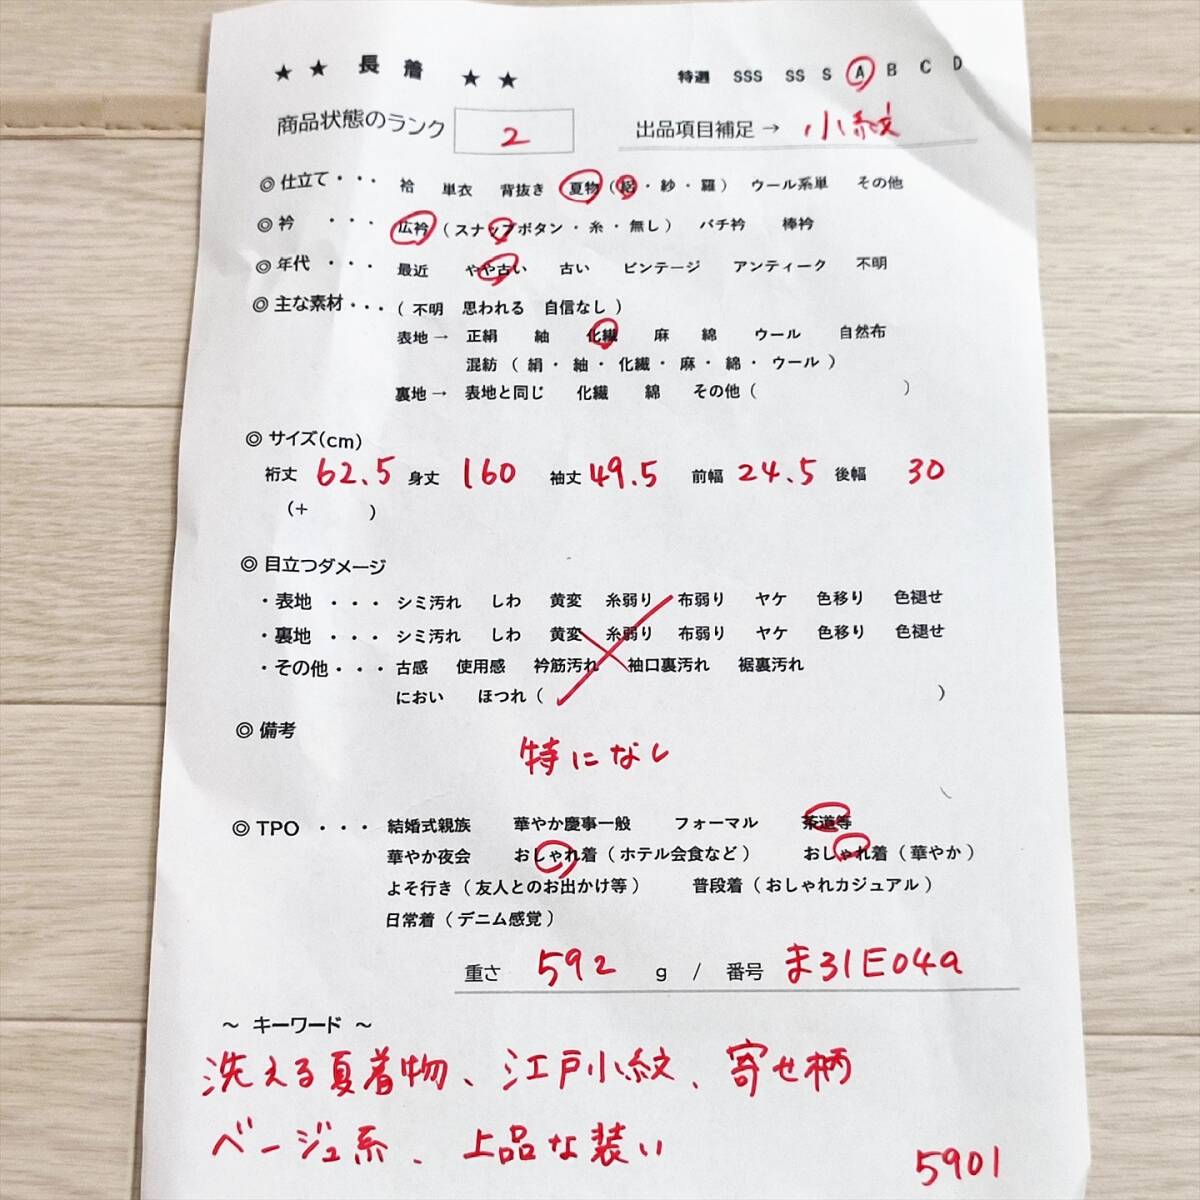 ★ ★ 長 着 ★ ★ 特選 SSS SS S A B C D
商品状態のランク 2 出品項目補足 → 小紋
◎ 仕立て・・・ 袷 単衣 背抜き 夏物 ( 絽 ・ 紗 ・ 羅 ) ウール系単 その他
◎ 衿 ・・・ 広衿 ( スナップボタン ・ 糸 ・ 無し ) バチ衿 棒衿
◎ 年代 ・・・ 最近 やや古い 古い ビンテージ アンティーク 不明
◎ 主な素材・・・ ( 不明 思われる 自信なし )
表地 → 正絹 紬 化繊 麻 綿 ウール 自然布
混紡 ( 絹 ・ 紬 ・ 化繊 ・ 麻 ・ 綿 ・ ウール )
裏地 → 表地と同じ 化繊 綿 その他 ( )
◎ サイズ(cm)
裄丈 62.5 身丈 160 袖丈 49.5 前幅 24.5 後幅 30
(+ )
◎ 目立つダメージ
・表地 ・・・ シミ汚れ しわ 黄変 糸弱り 布弱り ヤケ 色移り 色褪せ
・裏地 ・・・ シミ汚れ しわ 黄変 糸弱り 布弱り ヤケ 色移り 色褪せ
・その他・・・ 古感 使用感 衿筋汚れ 袖口裏汚れ 裾裏汚れ
におい ほつれ ( )
◎ 備考
特になし
◎ TPO ・・・ 結婚式親族 華やか慶事一般 フォーマル 茶道等
華やか夜会 おしゃれ着 ( ホテル会食など ) おしゃれ着 ( 華やか )
よそ行き ( 友人とのお出かけ等 ) 普段着 ( おしゃれカジュアル )
日常着 ( デニム感覚 )
重さ 592 g / 番号 ま31E04a
～ キーワード ～
洗える夏着物、江戸小紋、寄せ柄
ベージュ系、上品な装い
5901